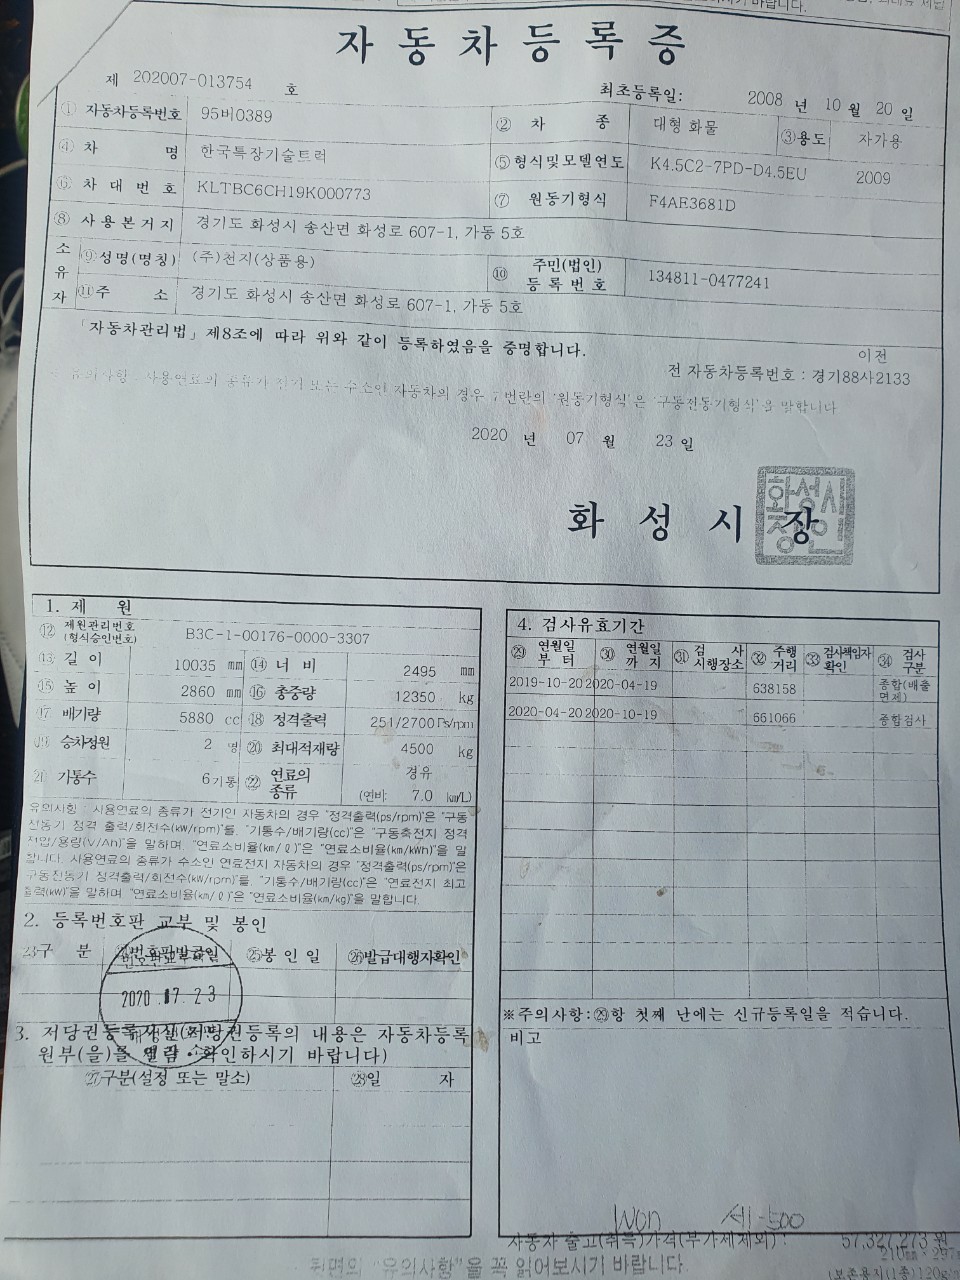 자동차등록증
제 202007-013754 호
최초등록일: 2008 년 10 월 20 일
① 자동차등록번호 95비0389 ② 차 종 대형 화물 ③용도 자가용
④ 차 명 한국특장기술트럭 ⑤형식및모델연도 K4.5C2-7PD-D4.5EU 2009
⑥ 차대번호 KLTBC6CH19K000773 ⑦ 원동기형식 F4AE3681D
⑧ 사용본거지 경기도 화성시 송산면 화성로 607-1, 가동 5호
소유자 ⑨성명(명칭) (주)천지(상품용) ⑩ 주민(법인)등록번호 134811-0477241
⑪주 소 경기도 화성시 송산면 화성로 607-1, 가동 5호
「자동차관리법」 제8조에 따라 위와 같이 등록하였음을 증명합니다.
이전
전 자동차등록번호 : 경기88사2133
유의사항 : 사용연료의 종류가 전기 또는 수소인 자동차의 경우 7번란의 '원동기형식'은 '구동전동기형식'을 말합니다
2020 년 07 월 23 일
화성시장
화성시장인
1. 제 원
⑫ 제원관리번호(형식승인번호) B3C-1-00176-0000-3307
⑬ 길이 10035 mm ⑭ 너비 2495 mm
⑮ 높이 2860 mm ⑯ 총중량 12350 kg
⑰ 배기량 5880 cc ⑱ 정격출력 251/2700 Ps/rpm
⑲ 승차정원 2 명 ⑳ 최대적재량 4500 kg
㉑ 기통수 6기통 ㉒ 연료의 종류 경유
(연비: 7.0 km/L)
유의사항 : 사용연료의 종류가 전기인 자동차의 경우 "정격출력(ps/rpm)"은 "구동
전동기 정격 출력/회전수(kW/rpm)"를, "기통수/배기량(cc)"은 "구동축전지 정격
전압/용량(V/Ah)"을 말하며, "연료소비율(km/ℓ)"은 "연료소비율(km/kWh)"을 말
합니다. 사용연료의 종류가 수소인 연료전지 자동차의 경우 "정격출력(ps/rpm)"은
구동전동기 정격출력/회전수(kW/rpm)"를, "기통수/배기량(cc)"은 "연료전지 최고
출력(kW)"을 말하며 "연료소비율(km/ℓ)"은 "연료소비율(km/kg)"을 말합니다.
2. 등록번호판 교부 및 봉인
㉓구 분 ㉔번호판발급일 ㉕봉인일 ㉖발급대행자확인
2020. 07. 23
3. 저당권등록사실(저당권등록의 내용은 자동차등록
원부(을)를 열람·확인하시기 바랍니다)
㉗구분(설정 또는 말소) ㉘일 자
4. 검사유효기간
㉙ 연월일부터 ㉚ 연월일까지 ㉛ 검사시행장소 ㉜ 주행거리 ㉝ 검사책임자확인 ㉞ 검사구분
2019-10-20 2020-04-19 638158 종합(배출면제)
2020-04-20 2020-10-19 661066 종합검사
※주의사항:㉙항 첫째 난에는 신규등록일을 적습니다.
비고
Won 세1-500
자동차 출고(취득)가격(부가세제외) : 57,327,273 원
뒷면의 "유의사항"을 꼭 읽어보시기 바랍니다.